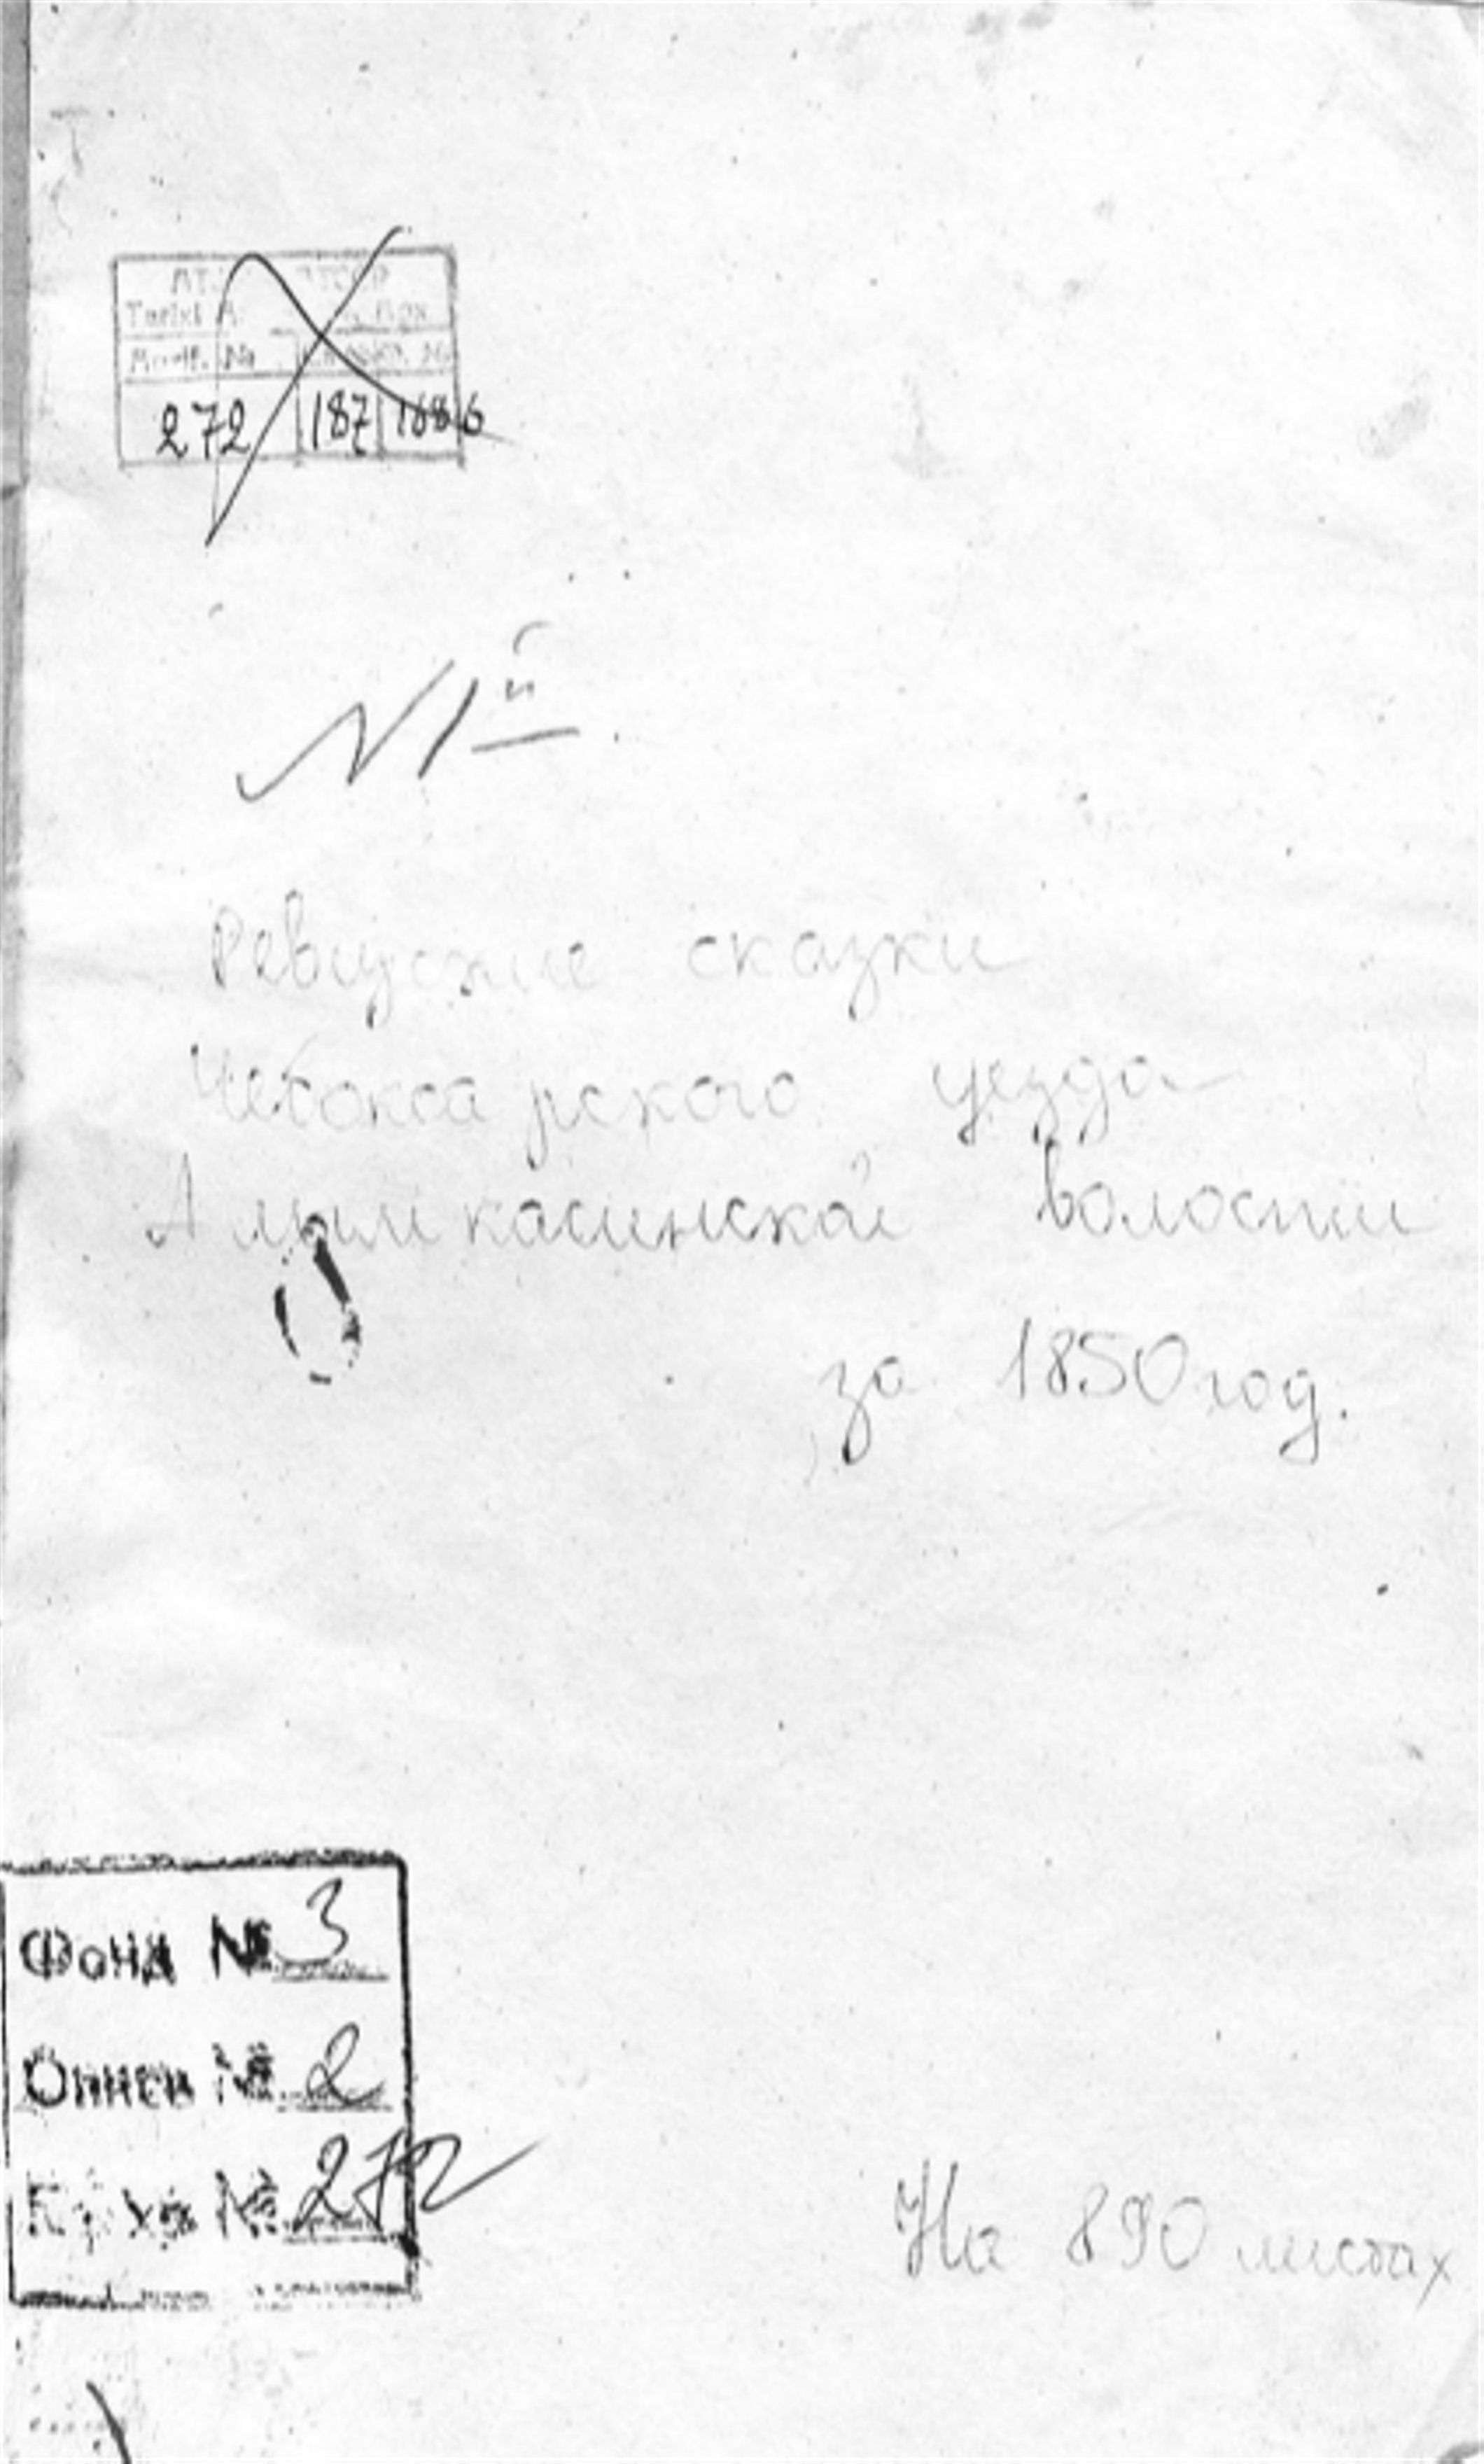 272 187 1686
N 1й.
Ревизские сказки
Чебоксарского уезда
Алымкасинской волости
за 1850 год.
Фонд № 3
Опись № 2
№ 272
На 890 листах